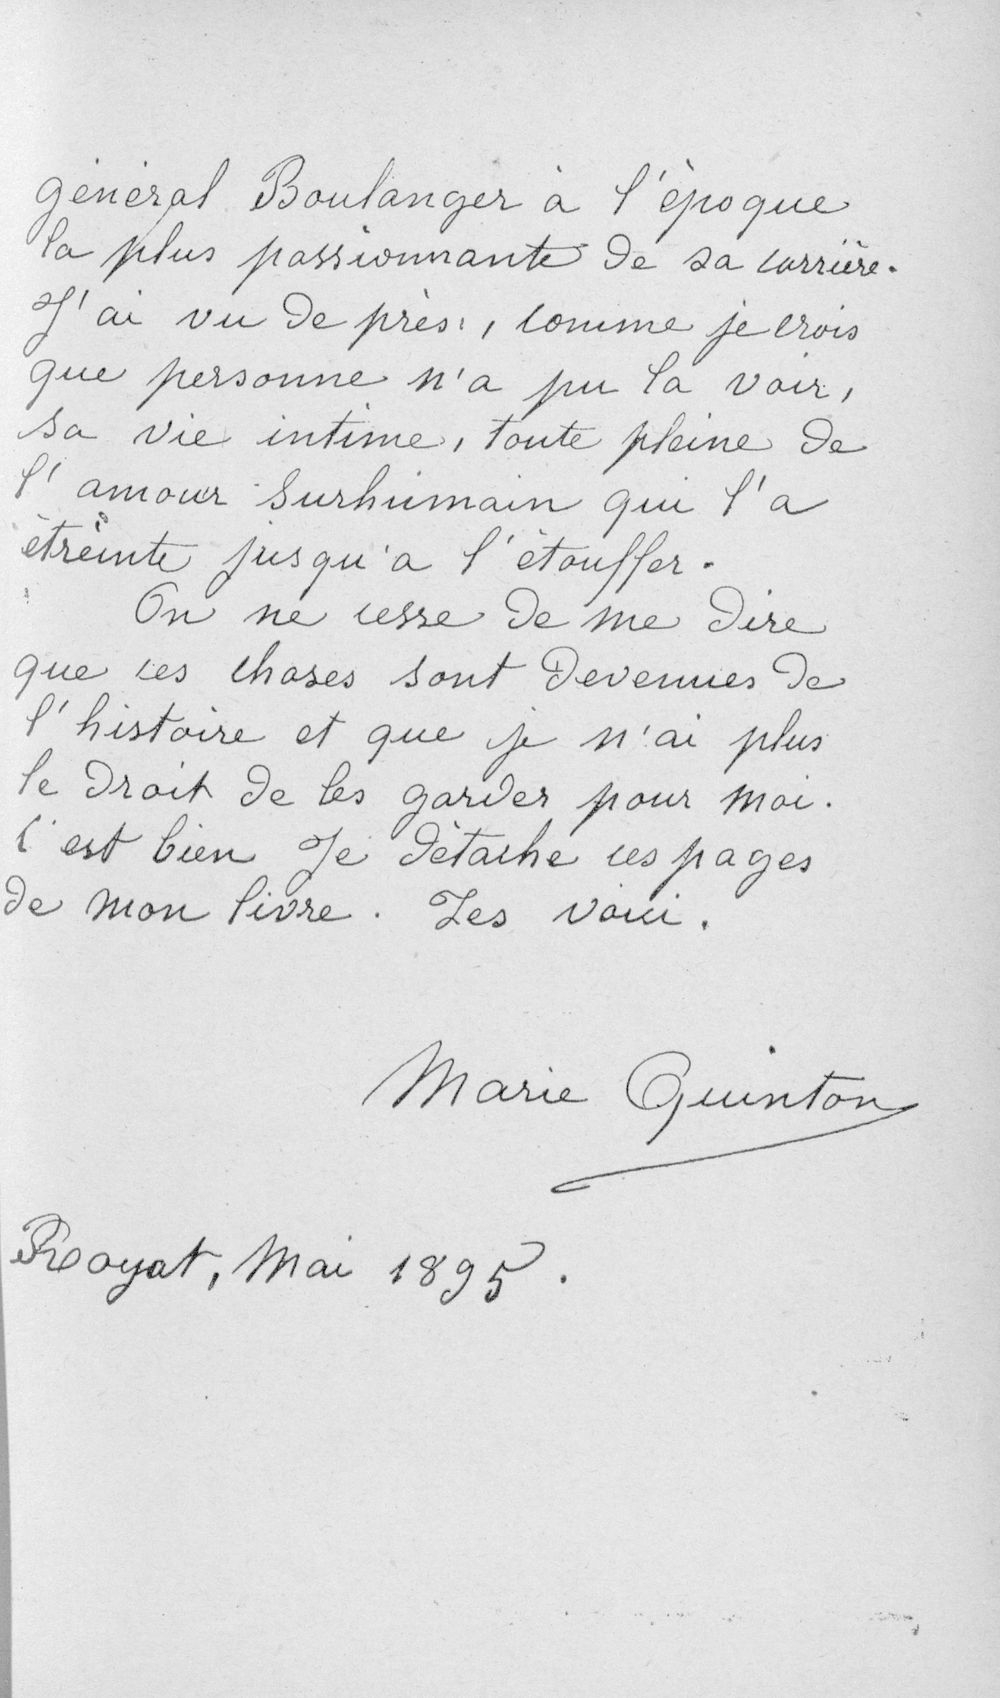 général Boulanger à l'époque
la plus passionnante de sa carrière.
J'ai vu de près, comme je crois
que personne n'a pu la voir,
sa vie intime, toute pleine de
l'amour surhumain qui l'a
étreinte jusqu'a l'étouffer.
On ne cesse de me dire
que ces choses sont devenues de
l'histoire et que je n'ai plus
le droit de les garder pour moi.
C'est bien Je détache ces pages
de mon livre. Les voici.
Marie Quinton
Royat, Mai 1895.